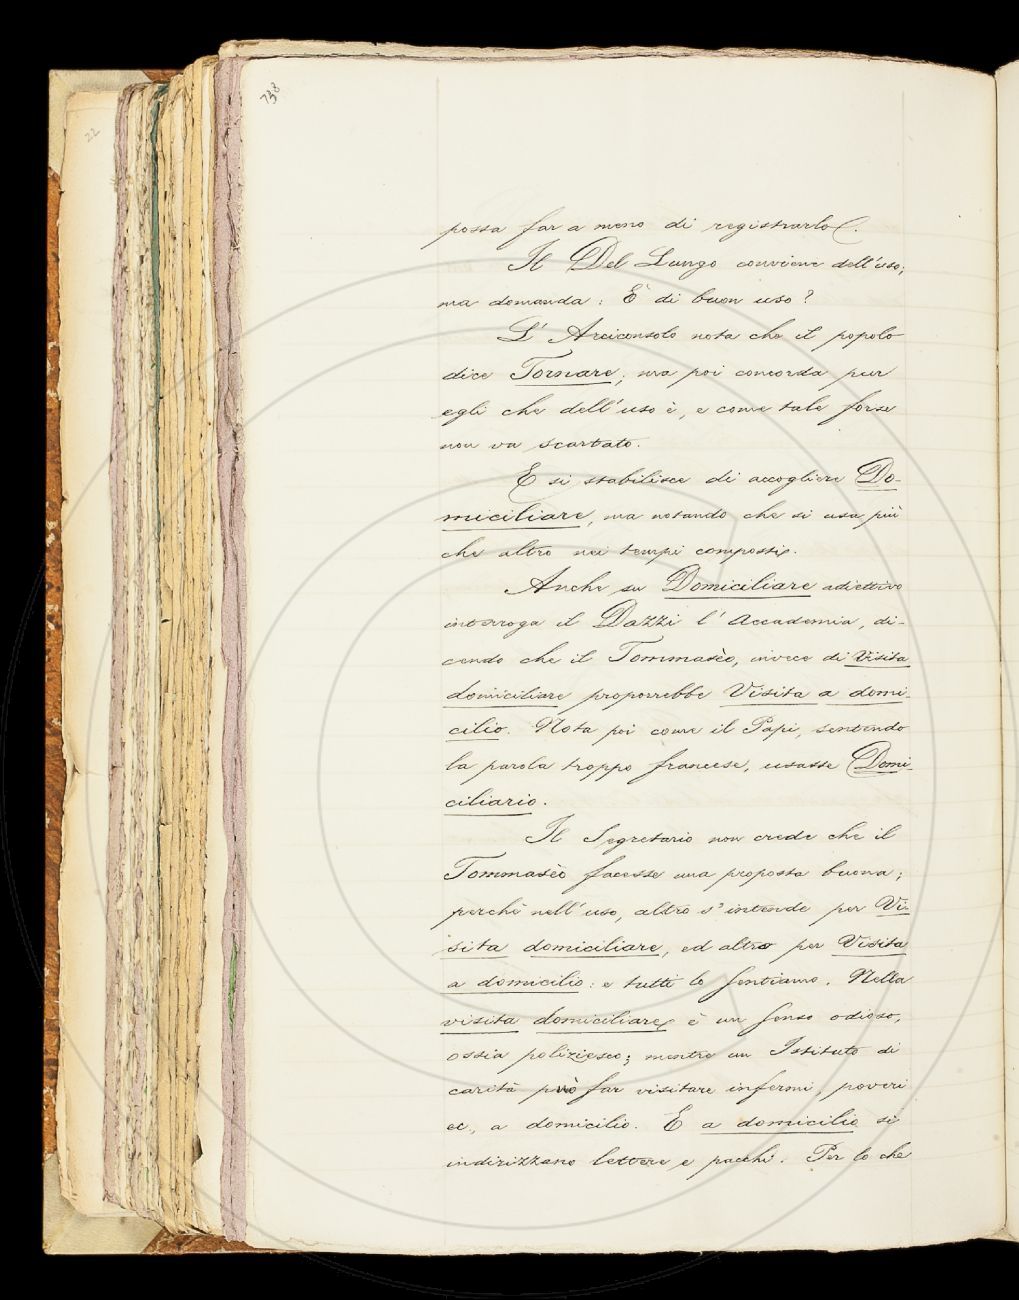 738
22
possa far a meno di registrarlo.
Il Del Lungo conviene dell'uso;
ma domanda: È di buon uso?
L'Arciconsolo nota che il popolo
dice Tornare; ma poi concorda pur
egli che dell'uso è, e come tale forse
non va scartato.
E si stabilisce di accogliere Do-
miciliare, ma notando che si usa più
che altro nei tempi composti.
Anche su Domiciliare adiettivo
interroga il Dazzi l'Accademia, di-
cendo che il Tommasèo, invece di Visita
domiciliare proporrebbe Visita a domi-
cilio. Nota poi come il Papi, sentendo
la parola troppo francese, usasse Domi-
ciliario.
Il Segretario non crede che il
Tommasèo facesse una proposta buona;
perchè nell'uso, altro s'intende per Vi-
sita domiciliare, ed altro per Visita
a domicilio: e tutti lo sentiamo. Nella
visita domiciliare è un senso odioso,
ossia poliziesco; mentre un Istituto di
carità può far visitare infermi, poveri
ec., a domicilio. E a domicilio si
indirizzano lettere e pacchi. Per lo che